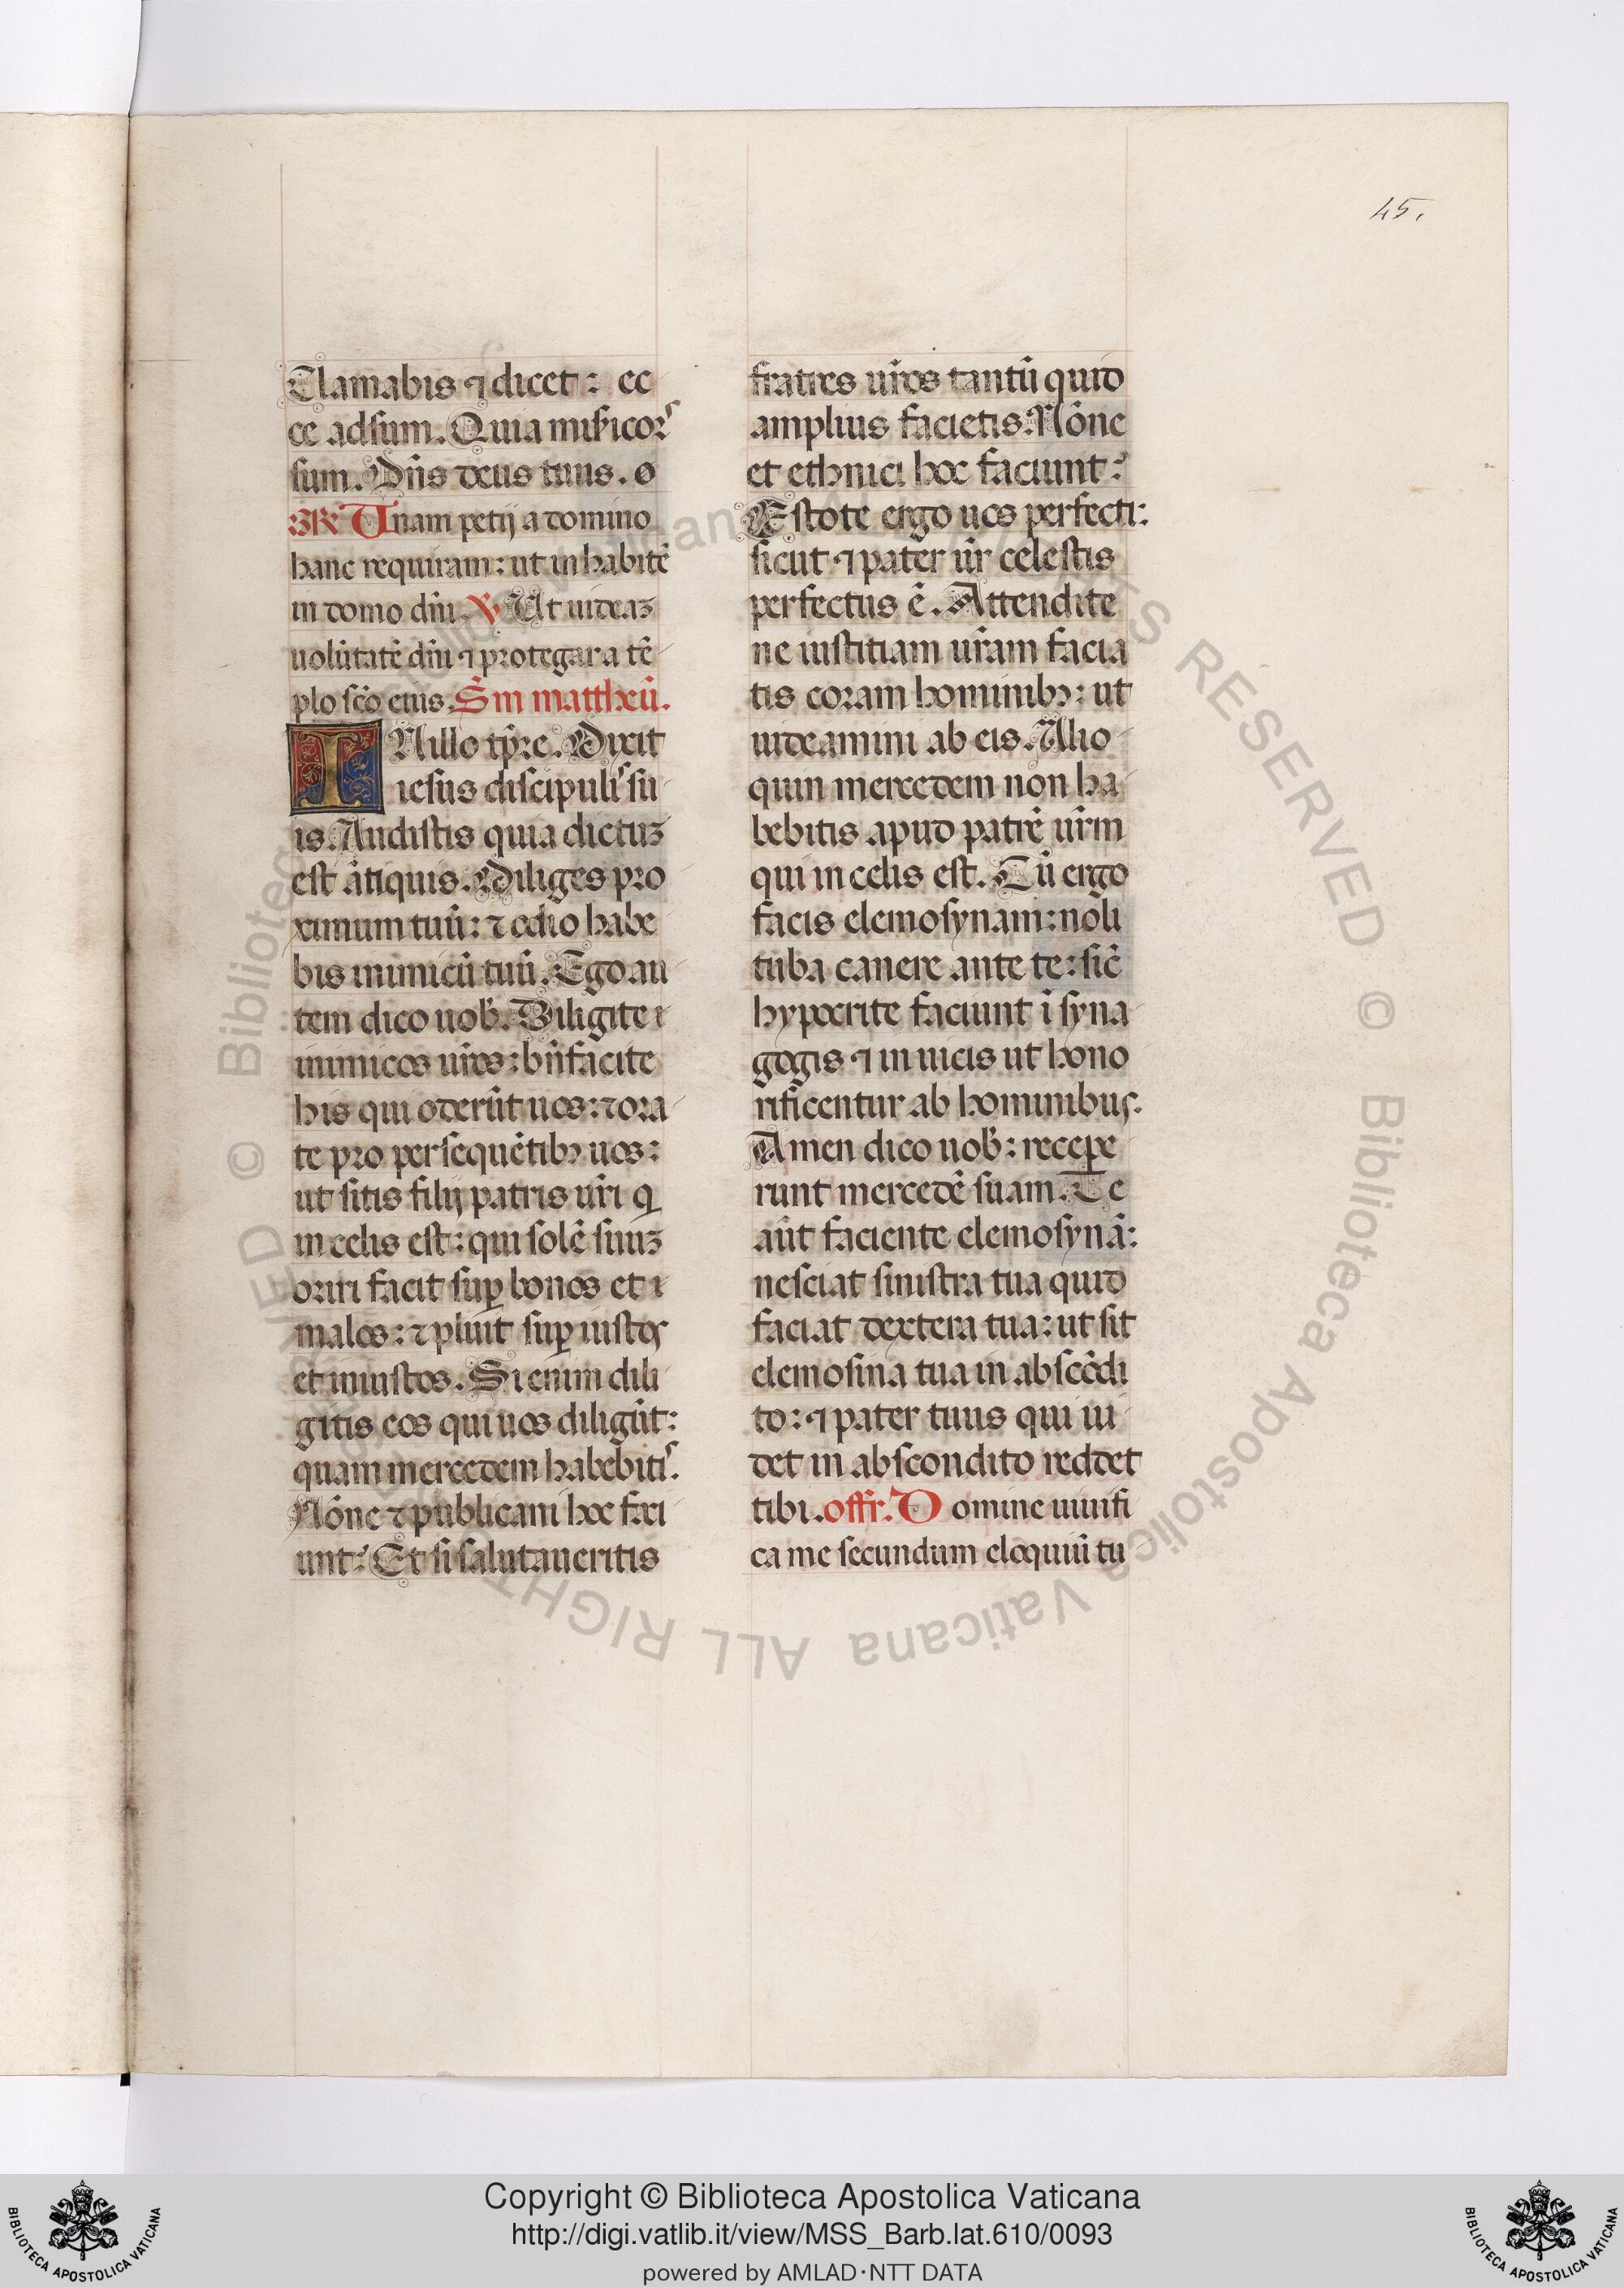 45.
Clamabis ⁊ dicet: ec
ce adsum. Quia misicorˢ
sum. Dn̄s deus tuus. ø
GR̄ Unam petij a domino
hanc requiram: ut inhabitē
in domo dn̄i. V. Ut uideaꝫ
uolūtatē dn̄i ⁊ protegar a tē
plo sc̄o eius. Sm̄ mattheū.
IN illo tp̄re. Dixit
iesus discipulis su
is. Audistis quia dictuꝫ
est ātiquis. Diliges pro
ximum tuū: ⁊ odio habe
bis inimicū tuū. Ego au
tem dico uob̄. Diligite i
inimicos ur̄os: bn̄facite
his qui oderūt uos: ⁊ ora
te pro persequētibꝫ uos:
ut sitis filij patris ur̄i q
in celis est: qui solē suuꝫ
oriri facit suꝑ bonos et i
malos: ⁊ pluit suꝑ iustos
et iniustos. Si enim dili
gitis eos qui uos diligūt:
quam mercedem habebitis.
Nōne ⁊ publicani hoc faci
unt? Et si salutaueritis
fratres ur̄os tantū quid
amplius facietis. Nōne
et ethnici hoc faciunt?
Estote ergo uos perfecti:
sicut ⁊ pater ur̄ celestis
perfectus ē. Attendite
ne iustitiam ur̄am facia
tis coram hominibꝫ: ut
uideamini ab eis. Alio
quin mercedem non ha
bebitis apud patrē ur̄m
qui in celis est. Cū ergo
facis elemosynam: noli
tuba canere ante te: sic̄
hypocrite faciunt ī syna
gogis ⁊ in uicis ut hono
rificentur ab hominibus.
Amen dico uob̄: recepe
runt mercedē suam. Te
aūt faciente elemosynā:
nesciat sinistra tua quid
faciat dextera tua: ut sit
elemosina tua in abscōdi
to: ⁊ pater tuus qui ui
det in abscondito reddet
tibi. offr. Domine uiuifi
ca me secundum eloquiū tu
© Biblioteca Apostolica Vaticana ALL RIGHTS RESERVED
Copyright © Biblioteca Apostolica Vaticana
http://digi.vatlib.it/view/MSS_Barb.lat.610/0093
powered by AMLAD·NTT DATA
BIBLIOTECA APOSTOLICA VATICANA
BIBLIOTECA APOSTOLICA VATICANA